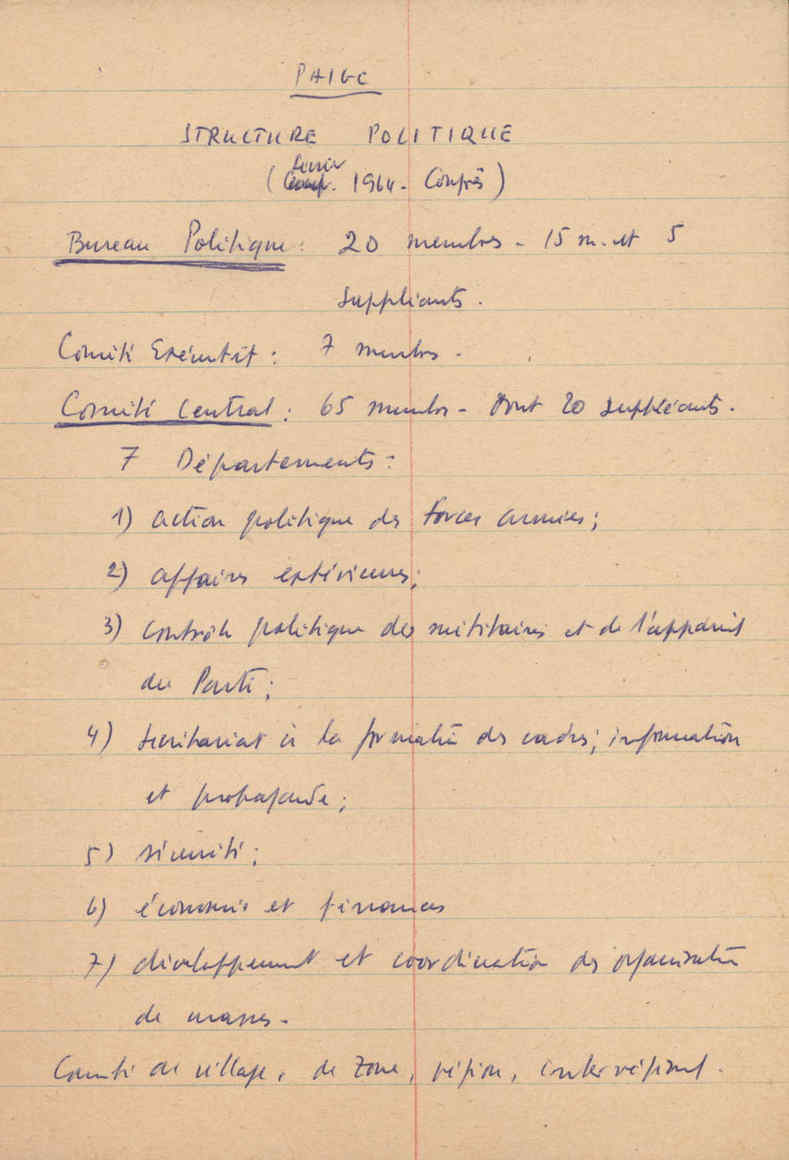 PAIGC
STRUCTURE POLITIQUE
( 1964 - Congrès)
Bureau Politique : 20 membres - 15 m. et 5
suppléants.
Comité Exécutif : 7 membres -
Comité Central : 65 membres - dont 20 suppléants.
7 Départements :
1) action politique des forces armées ;
2) affaires extérieures ;
3) contrôle politique des militaires et de l'appareil
du Parti ;
4) secrétariat à la formation des cadres, information
et propagande ;
5) sécurité ;
6) économie et finances
7) développement et coordination des organisations
de masses -
Comité de village, de zone, région, inter région.